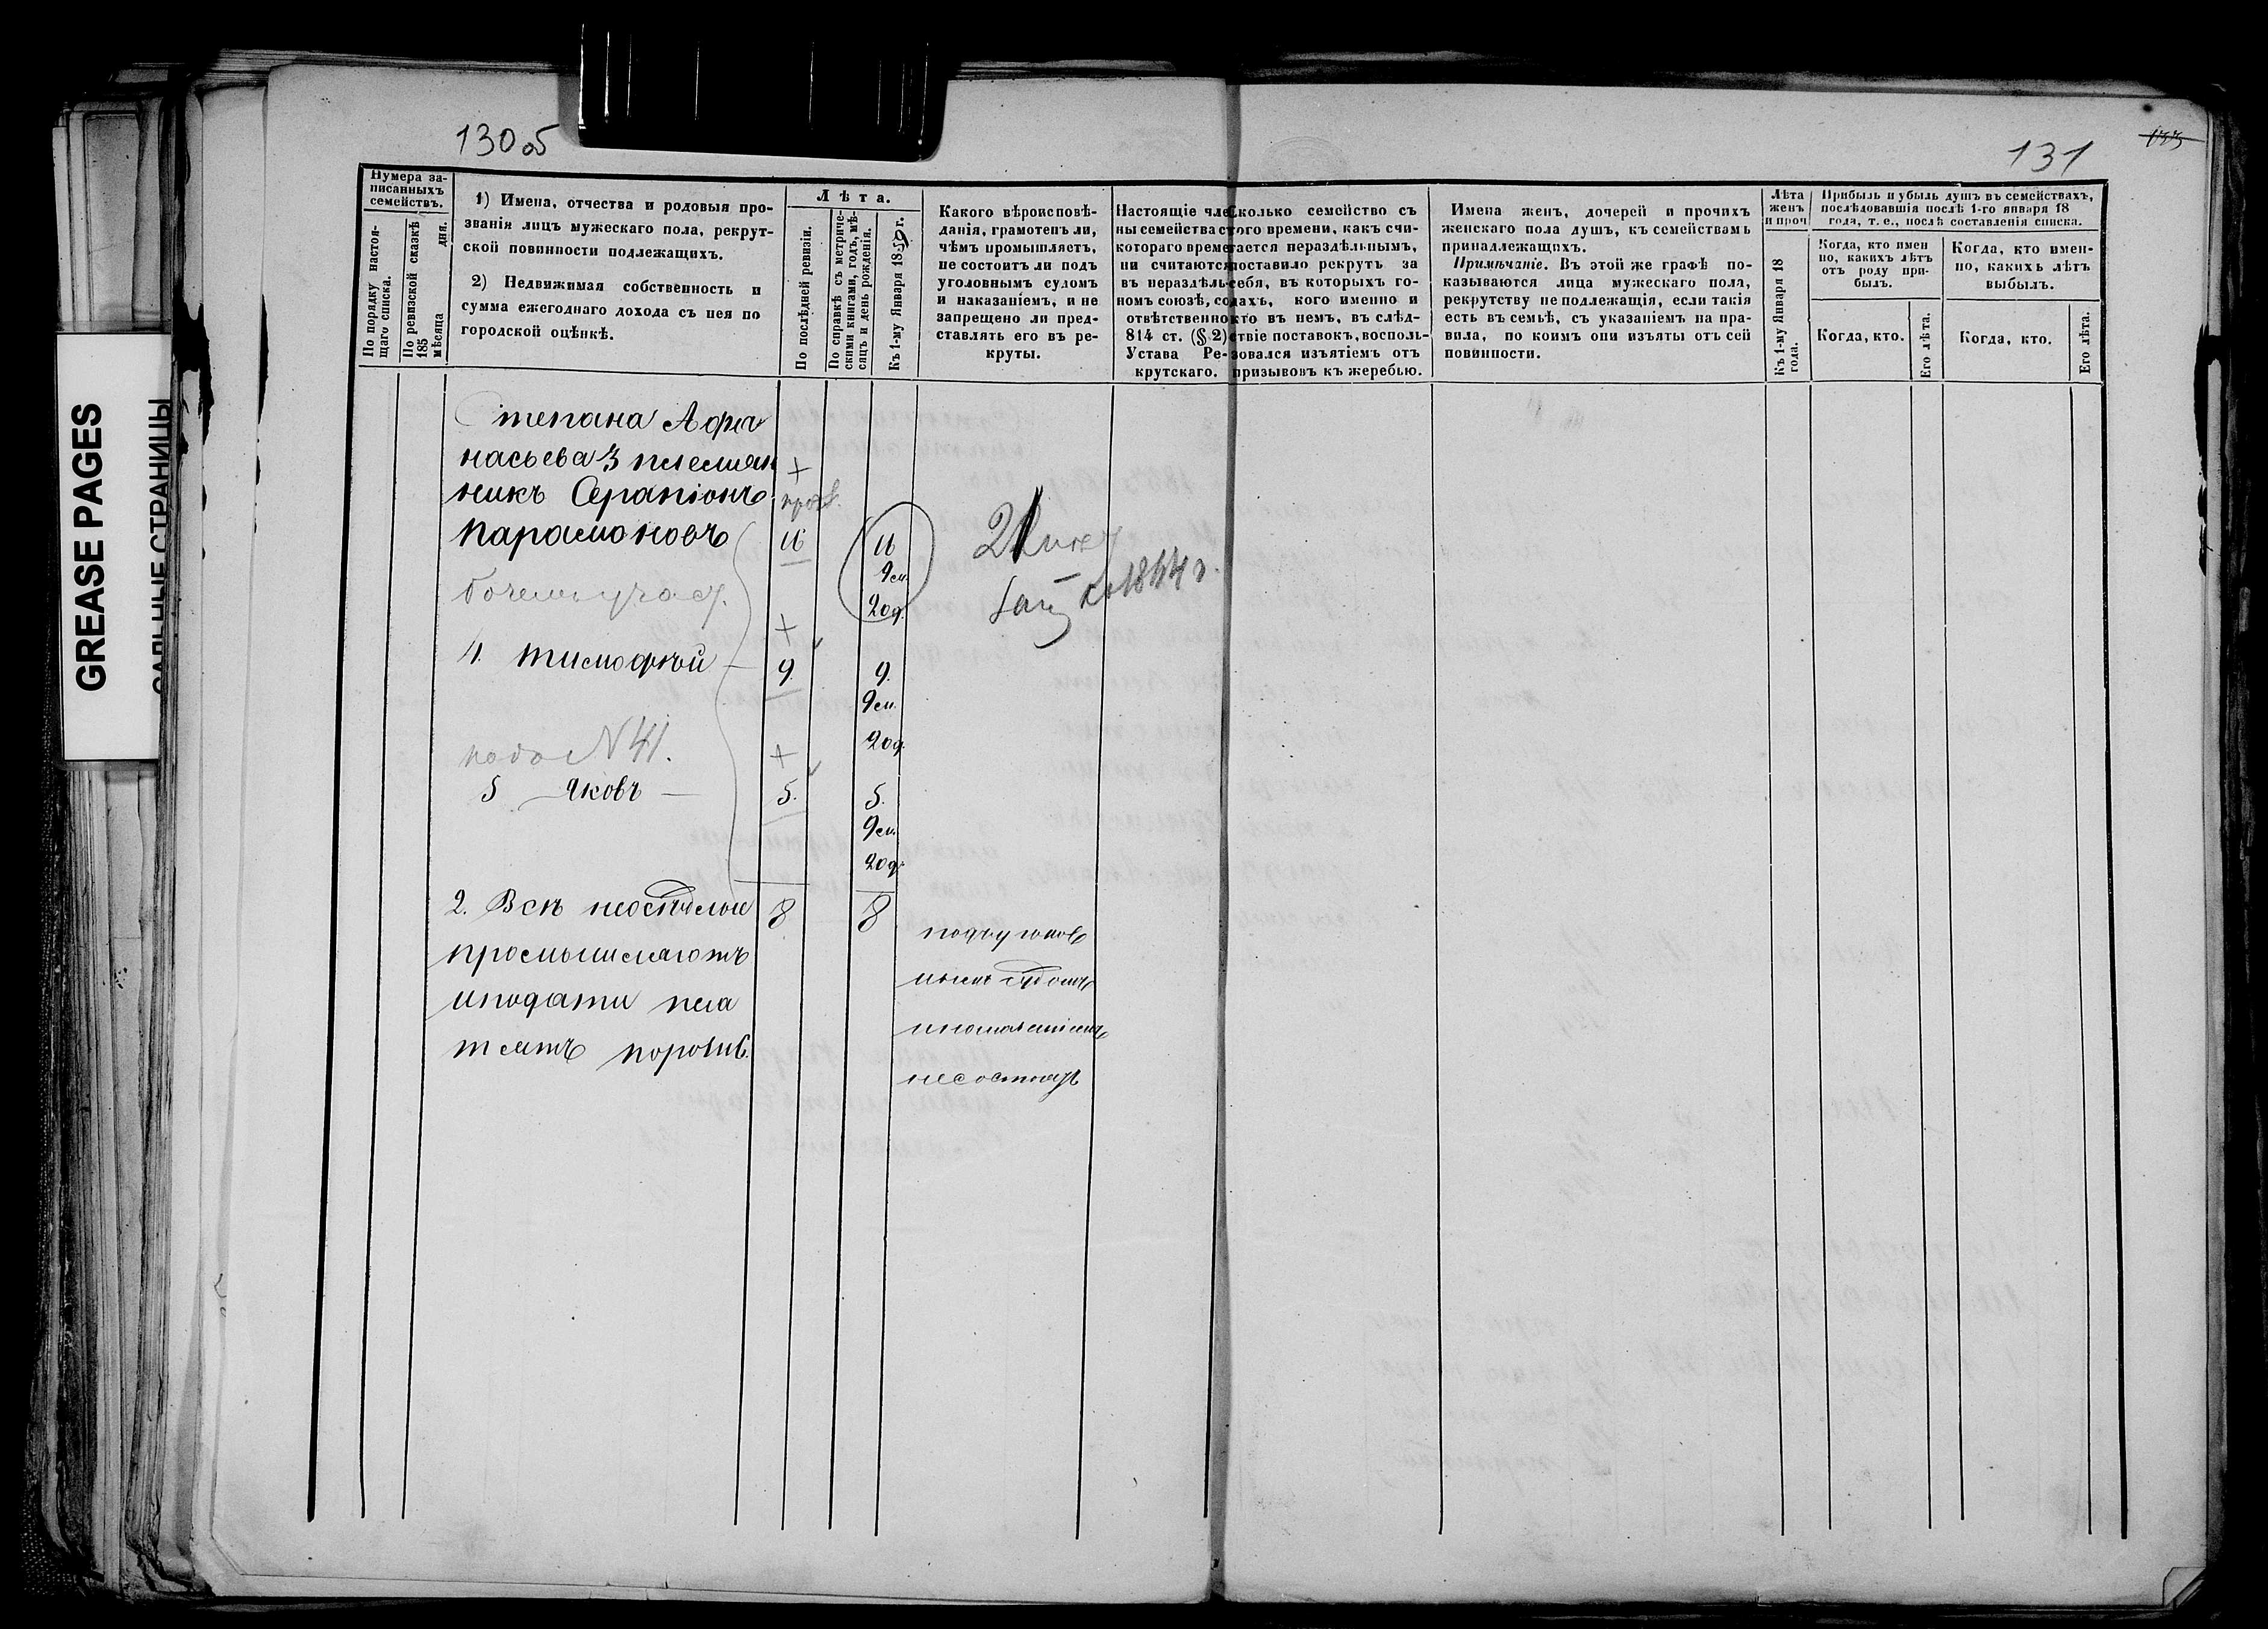 130 об
131
GREASE PAGES
САЛЬНЫЕ СТРАНИЦЫ
Нумера за-
писанныхъ
семействъ.
По порядку настоя-
щаго списка.
По ревизской сказкѣ
185
мѣсяца дня.
1) Имена, отчества и родовыя про-
званія лицъ мужескаго пола, рекрут-
ской повинности подлежащихъ.
2) Недвижимая собственность и
сумма ежегоднаго дохода съ нея по
городской оцѣнкѣ.
Лѣта.
По послѣдней ревизіи.
По справкѣ съ метриче-
скими книгами, годъ, мѣ-
сяцъ и день рожденія.
Къ 1-му Января 1859 г.
Какого вѣроисповѣ-
данія, грамотенъ ли,
чѣмъ промышляетъ,
не состоитъ ли подъ
уголовнымъ судомъ
и наказаніемъ, и не
запрещено ли пред-
ставлять его въ ре-
круты.
Настоящіе чле
ны семейства с
котораго време
ни считаются
въ нераздѣль
номъ союзѣ, со
отвѣтственно
814 ст. (§ 2)
Устава Ре-
крутскаго.
Сколько семейство съ
того времени, какъ счи-
тается нераздѣльнымъ,
поставило рекрутъ за
себя, въ которыхъ го-
дахъ, кого именно и
кто въ немъ, въ слѣд-
ствіе поставокъ, восполь-
зовался изъятіемъ отъ
призывовъ къ жеребью.
Имена женъ, дочерей и прочихъ
женскаго пола душъ, къ семействамъ
принадлежащихъ.
Примѣчаніе. Въ этой же графѣ по-
казываются лица мужескаго пола,
рекрутству не подлежащія, если такія
есть въ семьѣ, съ указаніемъ на пра-
вила, по коимъ они изъяты отъ сей
повинности.
Лѣта
женъ
и проч
Къ 1-му Января 18
года.
Прибыль и убыль душъ въ семействахъ,
послѣдовавшія послѣ 1-го января 18
года, т. е., послѣ составленія списка.
Когда, кто имен
но, какихъ лѣтъ
отъ роду при-
былъ.
Когда, кто имен-
но, какихъ лѣтъ
выбылъ.
Когда, кто.
Его лѣта.
Когда, кто.
Его лѣта.
Степана Афа
насьева 3 племян
никъ Серапіонъ
Парамоновъ 16 16
9 м.
20 д.
4. Тимофѣй 9 9.
9 м.
20 д.
подъ N 41.
5 Яковъ 5. 5.
9 м.
20 д.
2. Всѣ неотдѣльно 8 8
промышляютъ
и подати пла
тятъ порознь.
под уголов
нымъ судомъ
не состоятъ